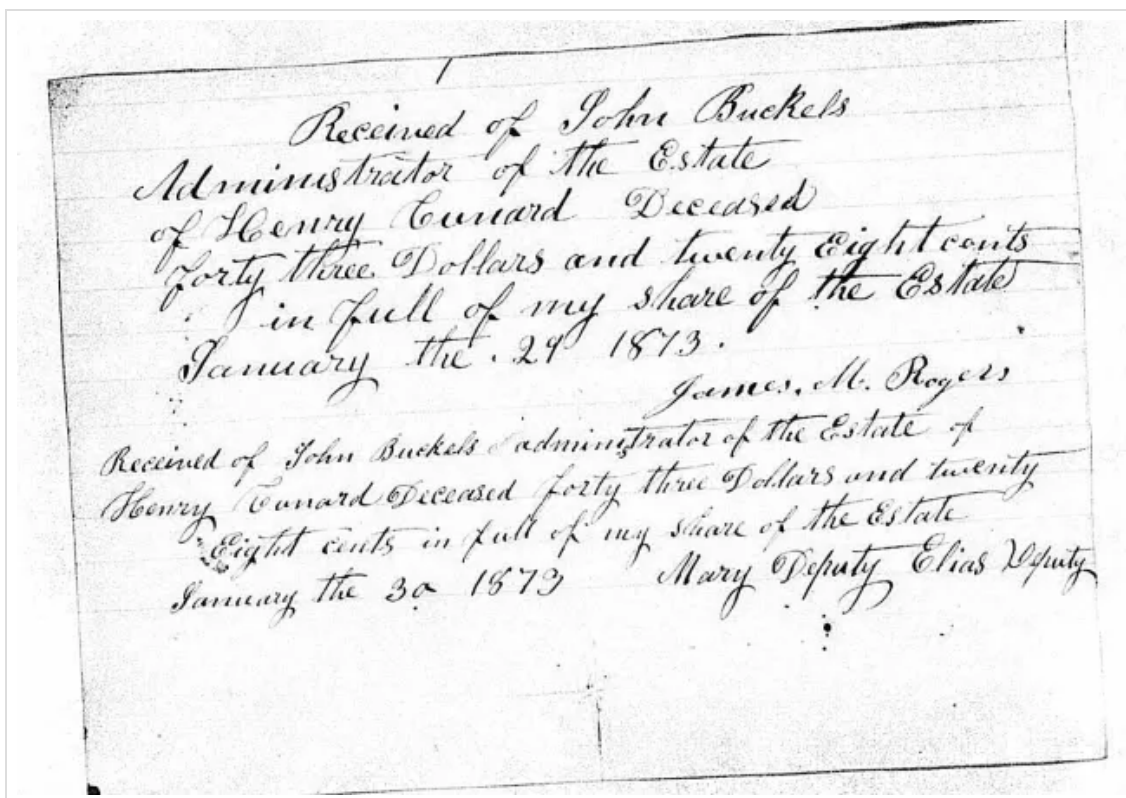 Received of John Buckels
Administrator of the Estate
of Henry Cunard Deceased
forty three Dollars and twenty Eight cents
in full of my share of the Estate
January the . 29 1873.
James. M. Rogers
Received of John Buckels administrator of the Estate of
Henry Cunard Deceased forty three Dollars and twenty
Eight cents in full of my share of the Estate
January the 30 1873 Mary Deputy Elias Deputy